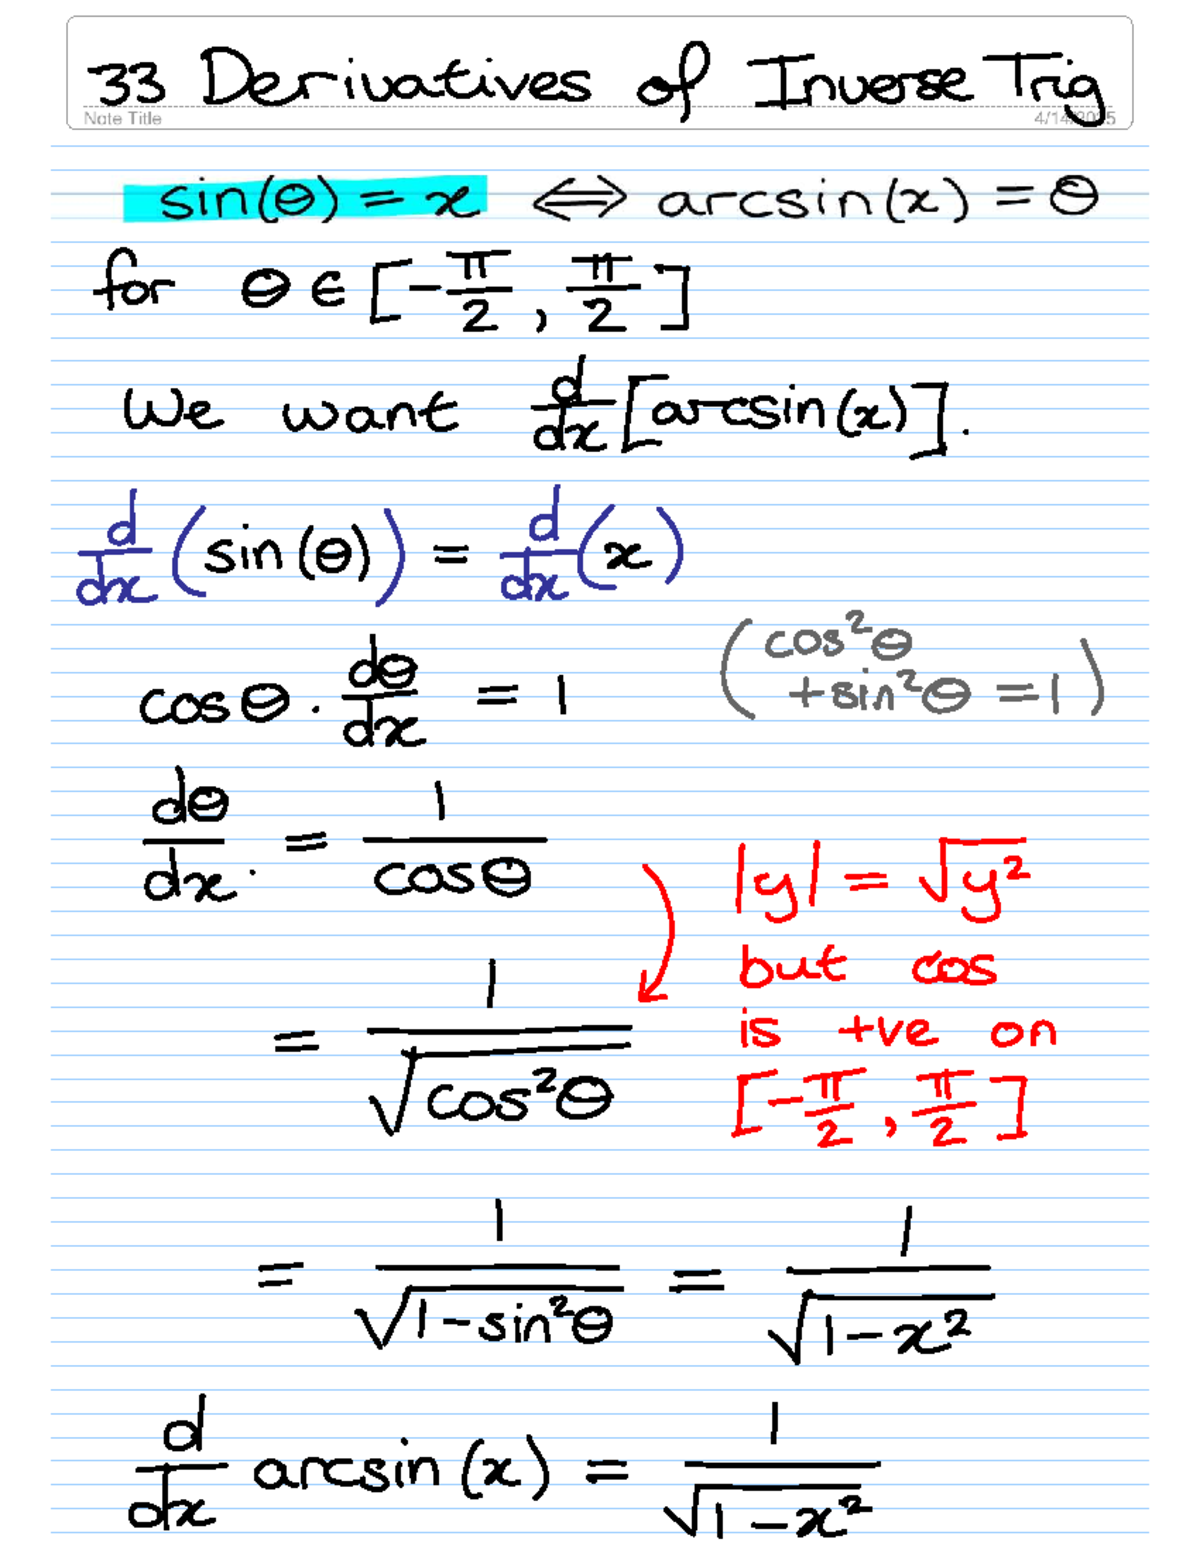 33 Derivatives of Inverse Trig
Note Title
sin(θ) = x ⇔ arcsin(x) = θ
for θ ∈ [-π/2, π/2]
We want d/dx [arcsin(x)].
d/dx (sin(θ)) = d/dx (x)
cosθ · dθ/dx = 1
(cos²θ
+sin²θ = 1)
dθ/dx = 1/cosθ
|y| = √y²
but cos
is +ve on
[-π/2, π/2]
= 1/√cos²θ
= 1/√1-sin²θ = 1/√1-x²
d/dx arcsin(x) = 1/√1-x²